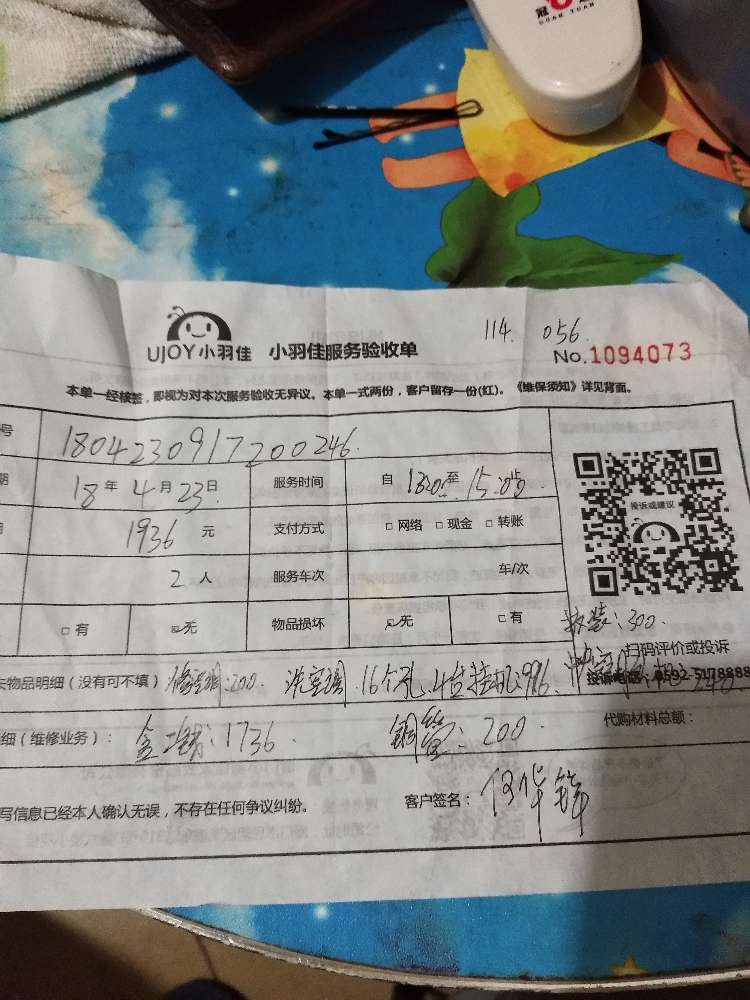 冠
GUAN YUAN
114. 056.
UJOY小羽佳 小羽佳服务验收单
No.1094073
本单一经核签，即视为对本次服务验收无异议。本单一式两份，客户留存一份(红)。《维保须知》详见背面。
号 1804230917200246.
期 18 年 4 月 23 日 服务时间 自 13:00 至 15:00
投诉或建议
1936 元 支付方式 □ 网络 □ 现金 □ 转账
2 人 服务车次 车/次
□ 有 ☑ 无 物品损坏 ☑ 无 □ 有
拆装：300.
扫码评价或投诉
物品明细（没有可不填） :200. 洗空调 16个孔
投诉电话：0592-5178888
细（维修业务）： :1736 铜管：200 代购材料总额：
写信息已经本人确认无误，不存在任何争议纠纷。 客户签名：